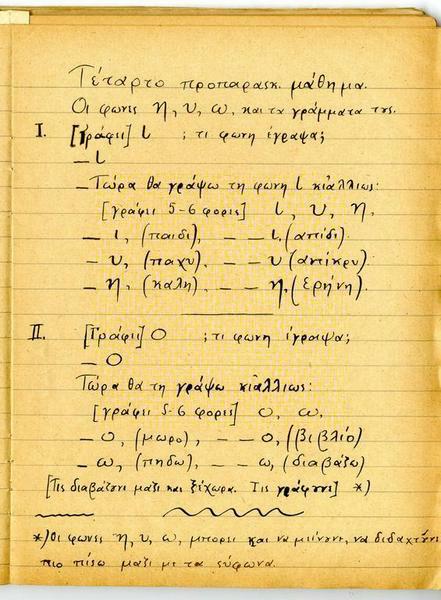 Τέταρτο προπαρασκ. μάθημα.
Οι φωνες η, υ, ω, και τα γράμματα της.
I. [γράφει] ι ; τι φωνη έγραψα;
— ι
— Τώρα θα γράψω τη φωνη ι κι άλλιως:
[γράφει 5-6 φορες] ι, υ, η,
— ι, (παιδι), — — ι, (απίδι)
— υ, (παχυ), — — υ (αντίκρυ)
— η, (καλη), — — η, (ερήνη)
II. [Γράφει] ο ; τι φωνη έγραψα;
— ο
Τώρα θα τη γράψω κι άλλιως:
[γράφει 5-6 φορες] ο, ω,
— ο, (μωρο), — — ο, (βιβλίο)
— ω, (πηδω), — — ω, (διαβάζω)
[Τις διαβάζουνι μαζι και ξέχωρα. Τις γράφουνι] *)
*) Οι φωνες η, υ, ω, μπορει και να μείνουνε, να διδαχτούνε
πιο πίσω μαζι με τα σύφωνα.